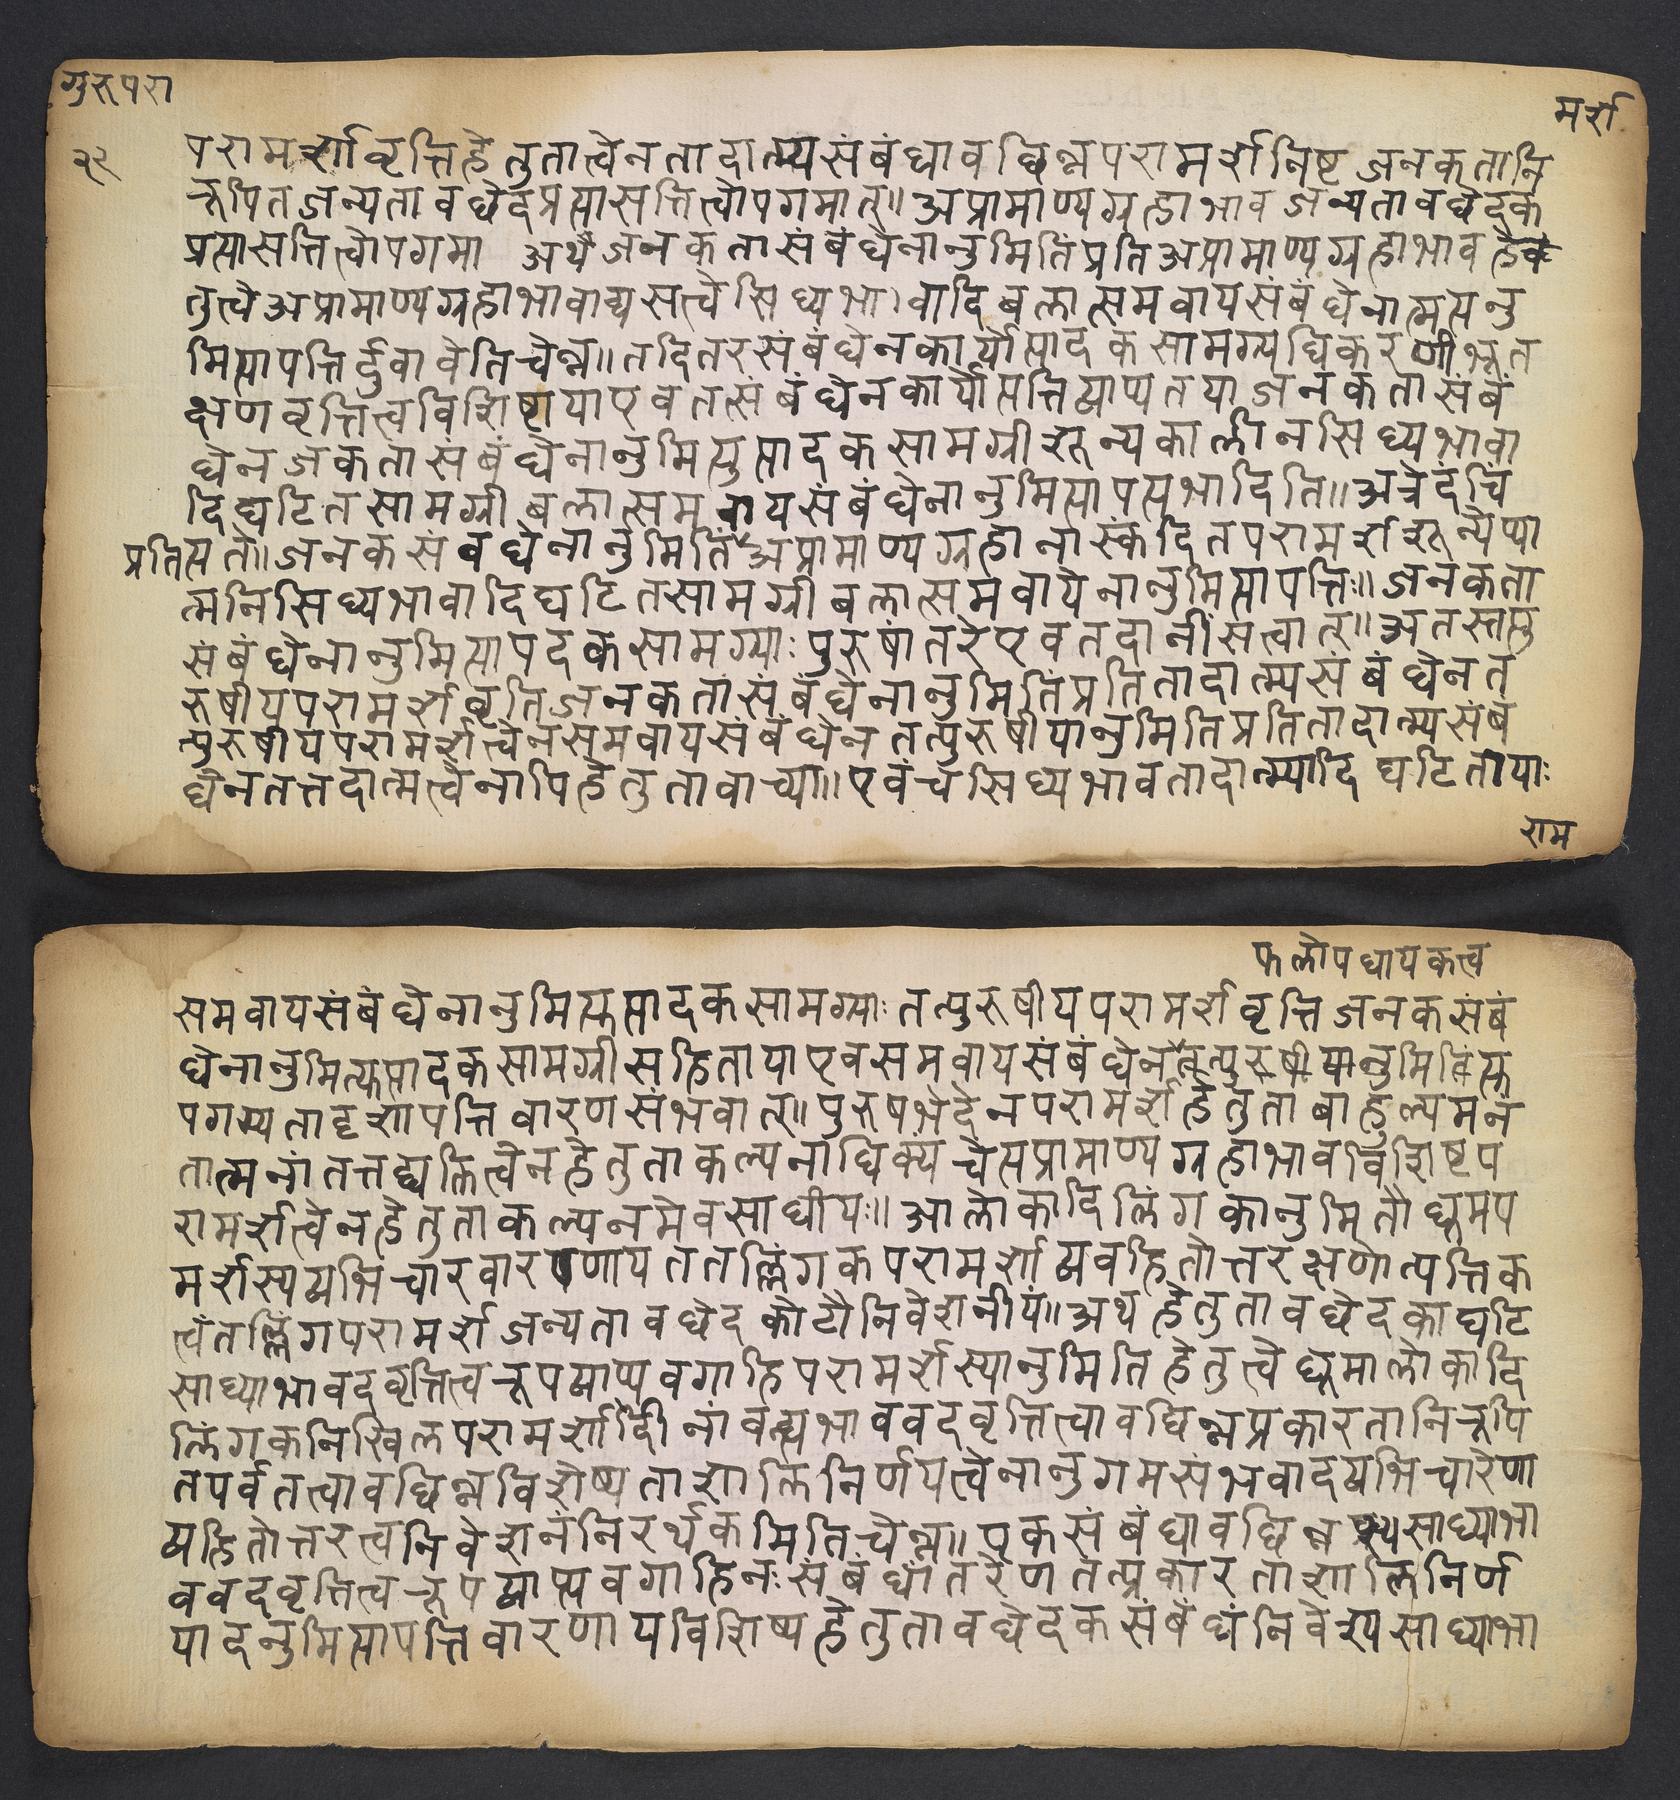 गुरुपरा
मर्श
२२
परामर्शावृत्तिहेतुतात्वेनतादात्म्यसंबंधावछिन्नपरामर्शनिष्टजनकतानि
रूपितजन्यतावछेदप्रत्यासत्तित्वोपगमात्॥अप्रामाण्यग्रहाभावजन्यतावछेदक
प्रत्यासत्तित्वोपगमा अथैजनकतासंबंधेनानुमितिंप्रतिअप्रामाण्यग्रहाभावहेक
तुत्वेअप्रामाण्यग्रहाभावाव्यसत्वेसिध्यभा।वादिबलात्समवायसंबंधेनात्मत्यनु
मित्यापत्तिर्दुवावेतिचेन्न॥तदितरसंबंधेनकार्योत्पादकसामग्यधिकरणीभूत
क्षणवृत्तित्वविशिष्टायाएवतत्संबंधेनकार्योत्पत्तिव्याप्यतयाजनकतासंबं
धेनजकतासंबंधेनानुमित्युत्पादकसामग्रीशून्यकालीनसिध्यभावा
दिघटितसामग्रीबलात्समवायसंबंधेनानुमित्यापत्यभादिति॥अत्रेदंचिं
प्रतित्यते॥जनकसंवधेनानुमितिंअप्रामाण्यग्रहानास्कंदितपरामर्शशून्येप्या
त्मनिसिध्यभावादिघटितसामग्रीबलात्समवायेनानुमित्यापत्तिः॥जनकता
संबंधेनानुमित्यापदकसामग्याःपुरुषांतरेएवतदानींसत्वात्॥अतस्तत्पु
रुषीयपरामर्शवृतिजनकतासंबंधेनानुमितिंप्रतितादात्म्यसंबंधेनत
त्पुरुषीयपरामर्शत्वेनसमवायसंबंधेनतत्पुरुषीयानुमितिप्रतितादात्म्यसंबं
धेनतत्तदात्मत्वेनापिहेतुतावाच्या॥एवंचसिध्यभावतादात्म्यादिघटितायाः
राम
फलोपधायकत्व
समवायसंबंधेनानुमित्युत्पादकसामग्याःतत्पुरुषीयपरामर्शवृत्तिजनकसंबं
धेनानुमित्युत्पादकसामग्रीसहितायाएवसमवायसंबंधेनतत्पुरुषीयानुमितिंत्यु
पगम्यतादृशापत्तिवारणसंभवात्॥पुरुषभेदेनपरामर्शहेतुताबाहुल्यमनं
तात्मनांतत्तद्व्यक्तित्वेनहेतुताकल्पनाधिक्यंचेत्यप्रामाण्यग्रहाभावविशिष्टप
रामर्शत्वेनहेतुताकल्पनमेवसाधीयः॥आलोकादिलिंगकानुमितौधूमप
मर्शस्यव्यभिचारवारणायततल्लिंगकपरामर्शाव्यवहितोत्तरक्षणोत्पत्तिक
त्वंतल्लिंगपरामर्शजन्यतावछेदकोटौनिवेशनीयं॥अथहेतुतावछेदकाघटि
साध्याभावदवृत्तित्वरूपव्याप्यवगाहिपरामर्शस्यानुमितिहेतुत्वेधूमालोकादि
लिंगकनिखिलपरामर्शादीनांवन्ह्यभाववदवृत्तित्वावछिन्नप्रकारतानिरूपि
तपर्वतत्वावछिन्नविशेष्यताशालिनिर्णयत्वेनानुगमसंभवादव्यभिचारेणा
व्यहितोत्तरत्वनिवेशनंनिरर्थकमितिचेन्न॥एकसंबंधावछिन्नस्यसाध्याभा
ववदवृत्तित्वरूपव्याप्यवगाहिनःसंबंधांतरेणतत्प्रकारताशालिनिर्ण
यादनुमित्यापत्तिवारणायविशिष्यहेतुतावछेदकसंबंधंनिवेश्यसाध्याभा